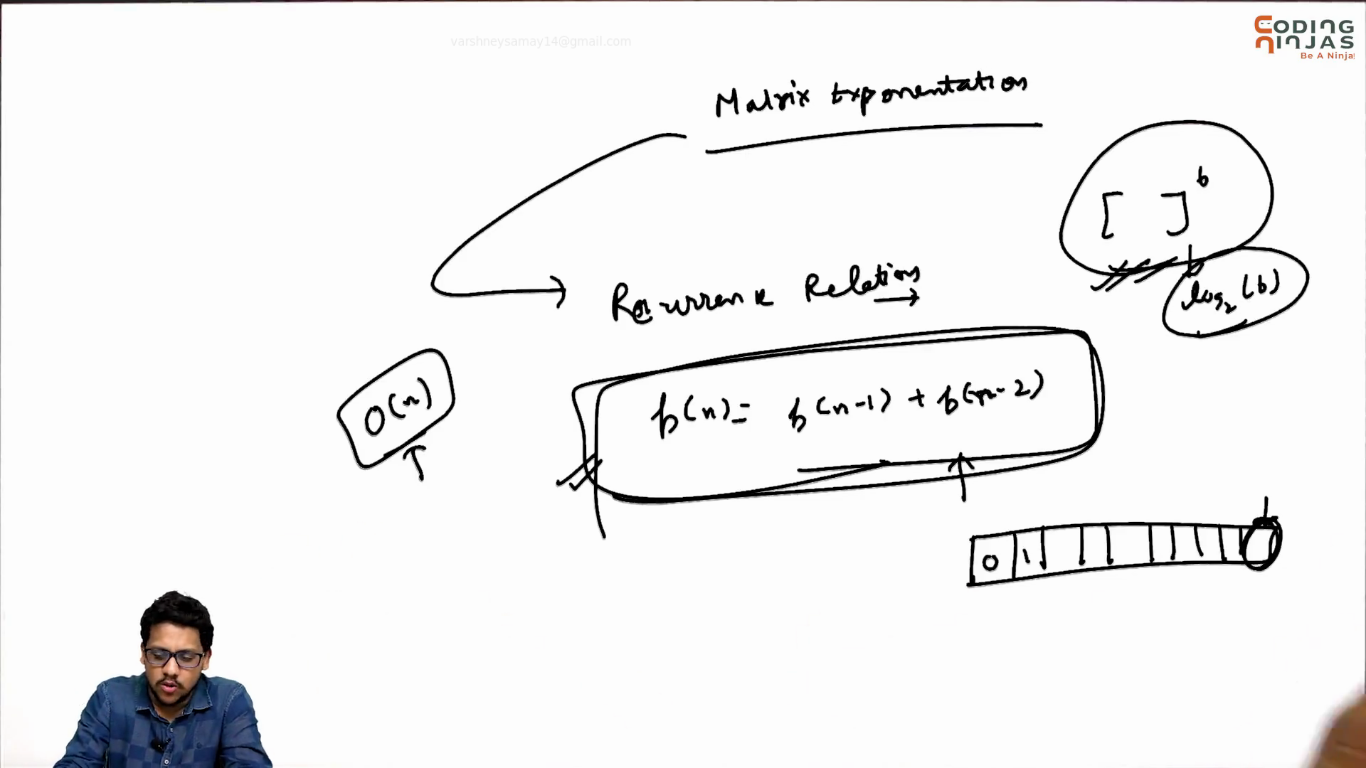 varshneysamay14@gmail.com
CODING
NINJAS
Be A Ninja
Matrix Exponentation
[ ]^b
log₂(b)
Recurrence Relations
O(n)
f(n)= f(n-1) + f(n-2)
0 1